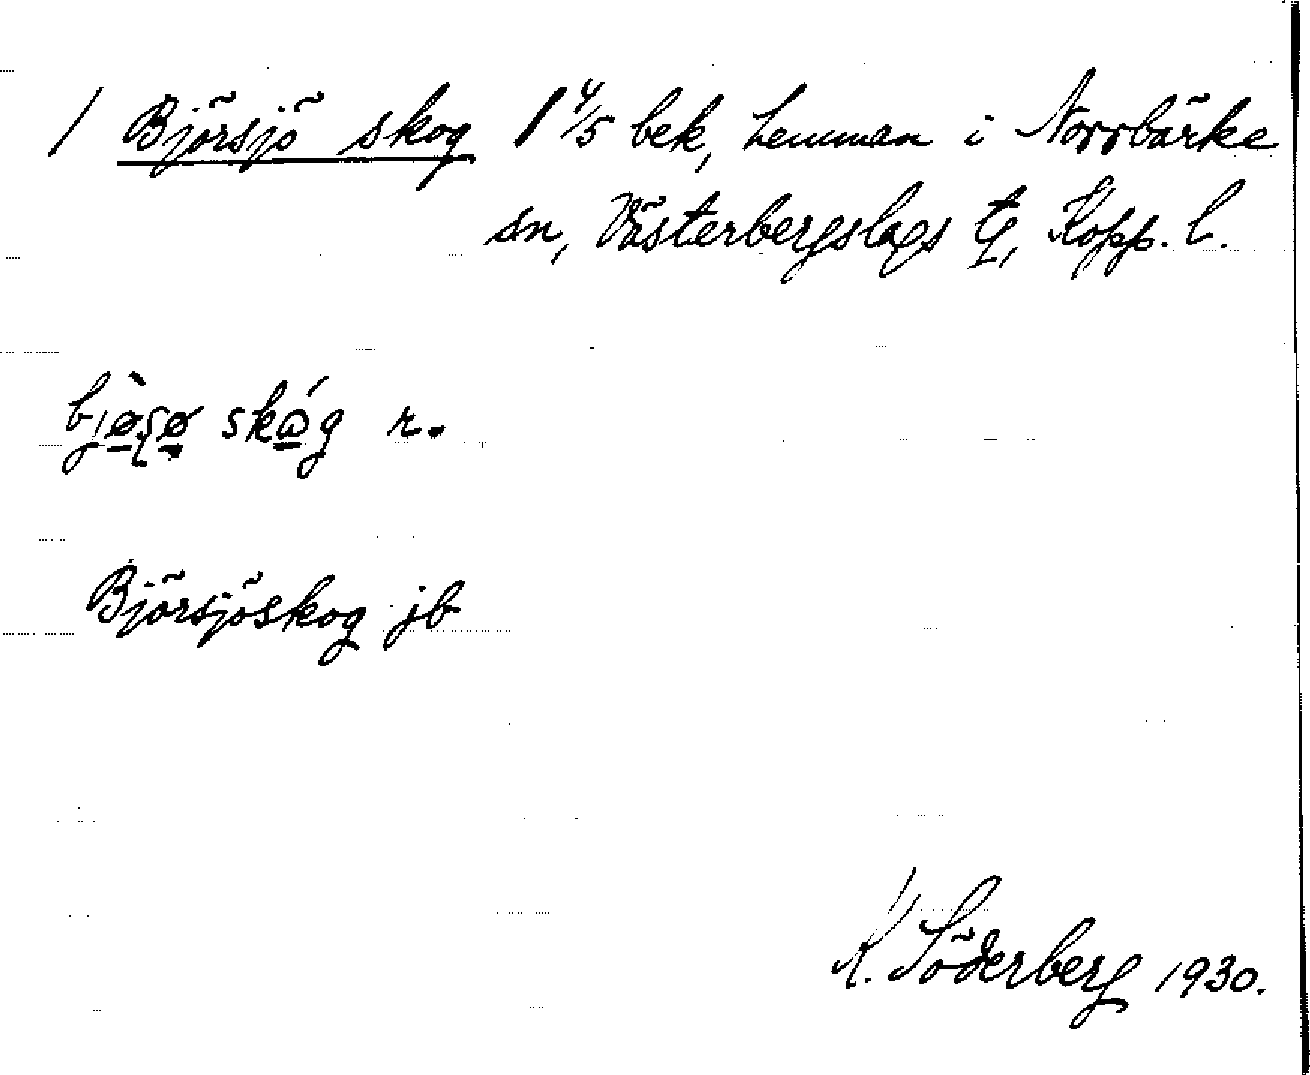 / Björsjö skog 1 4/5 bek, hemman i Norrbärke
sn, Västerbergslags tg, Kopp. l.
bjø̀ʂø skóg r.
Björsjöskog jb
K. Söderberg 1930.